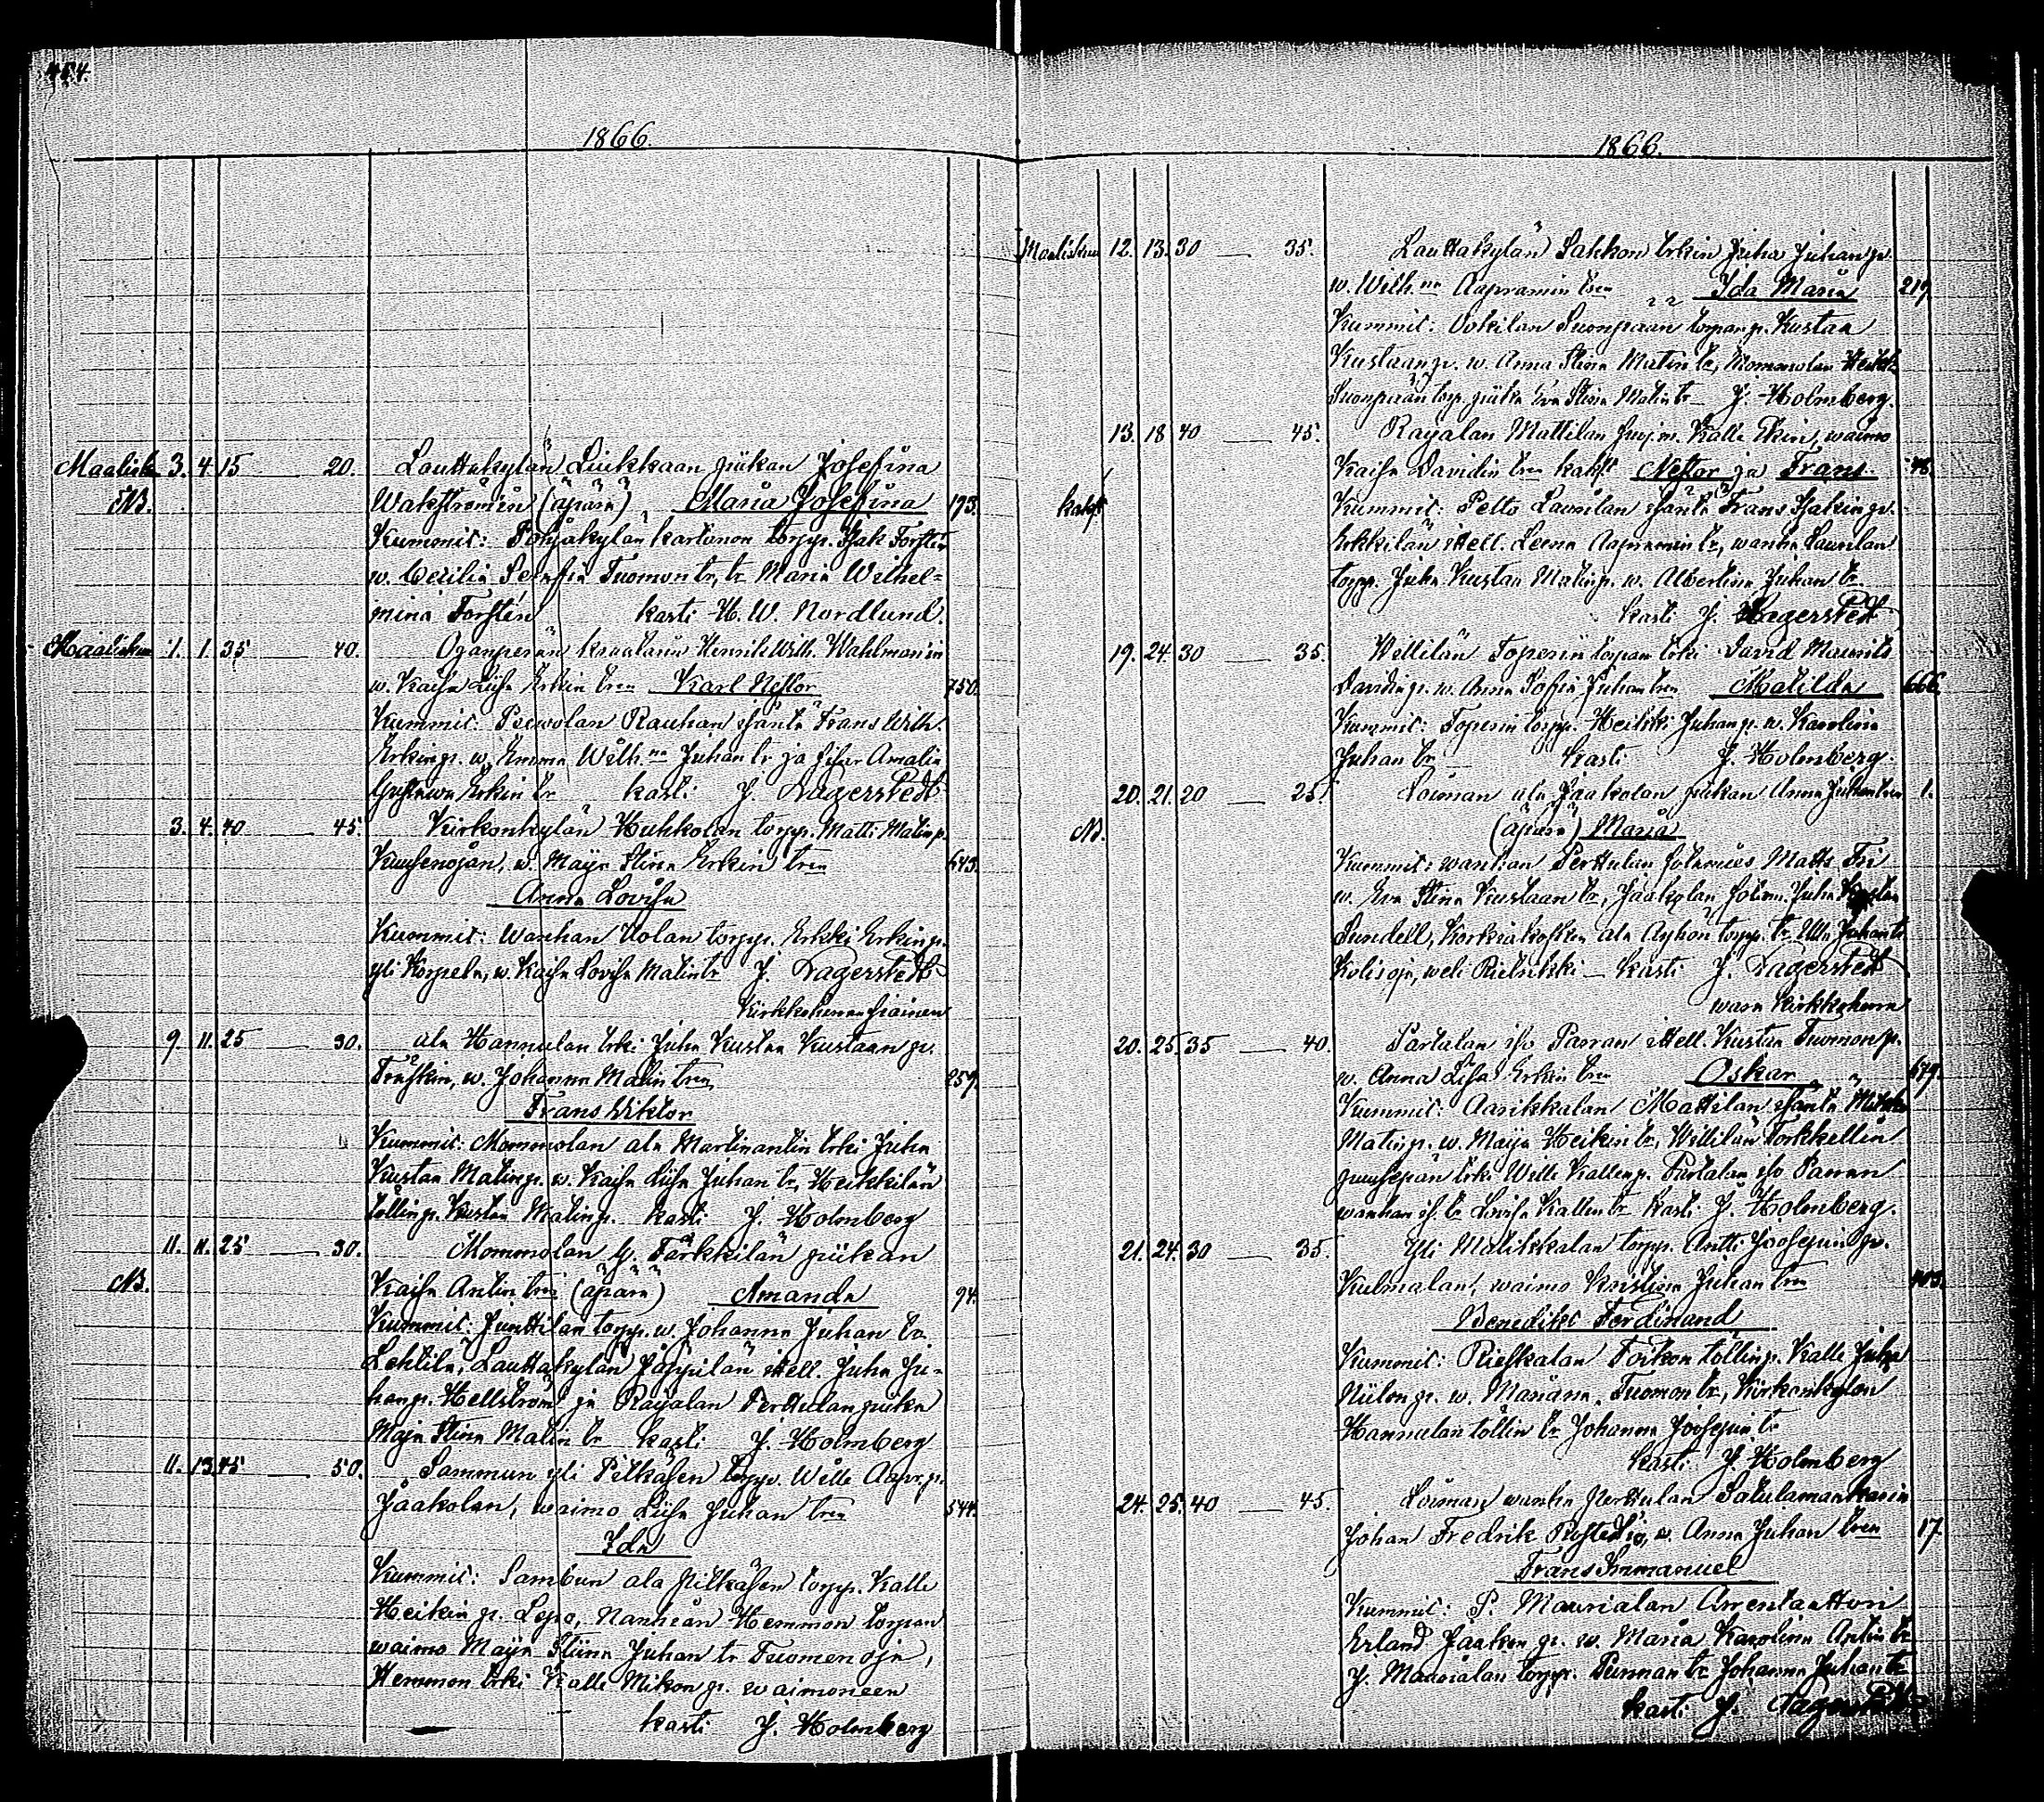 1866.
Maalisk. 3. 4. 15 — 20. Lauttakylän Liukkaan piikan Josefina
NB. Wakströmin (äpärä) Maria Josefina 193.
Kummit: Pohjakylän kartanon torpp. Isak Forstén
w. Cecilia Serafia Tuomon tr, tr Maria Wilhel=
mina Forstén kasti H. W. Nordlund.
Maaliskuu 1. 1. 35 — 40. Henrik Wilh. Wahlman'in
w. Kaisa Liisa Erkin tren Karl Nestor 750.
Kummit: Rauhan isäntä Frans Wilh.
Erkinp. w. Emma Wilh.na Juhan tr ja Amalia
Gustawa Erkin tr kasti J. Lagerstedt
3. 4. 40 — 45. Kirkonkylän Huhkolan torpp. Matti Matinp.
w. Maija Stina Erkin tren 643.
Anna Lovisa
Kummit: Wanhan Uolan torpp. Erkki Erkinp.
yli Korpela, w. Kaisa Lovisa Matintr J. Lagerstedt
Kirkkoherran siainen
9. 11. 25 — 30. ala Hannulan trki Juha Kustaa Kustaan p.
w. Johanna Matin tren 259.
Frans Wiktor
Kummit: Mommolan ala Martinantin trki Juha
Kustaa Matinp. w. Kaisa Liisa Juhan tr, Heikkilän
töllinp. Kustaa Matinp. kasti J. Holmberg
11. 11. 25 — 30. Mommolan Y. Tärkkilän piikan
NB. Kaisa Antin tren (äpärä) Amanda 94.
Kummit: Junttilan torpp. w. Johanna Juhan tr
Lehtilä, Lauttakylän Jäppilän itell. Juha Ju=
hanp. Hellström ja Raijalan Perttulan piika
Maja Stina Matin tr kasti J. Holmberg
11. 13. 45 — 50. Sammun yli Pitkäsen torpp. Wille Aapr.p.
Jaakolan, waimo Liisa Juhan tren 544.
Ida
Kummit: Sammun ala Pitkäsen torpp. Kalle
Heikin p. Lepo, Nanhiån Hemmon torpan
waimo Maija Stiina Juhan tr Tuomenoja,
Hemmon trki Kalle Mikon p. waimoneen
kasti J. Holmberg
1866.
Maaliskuu 12. 13. 30 — 35. Lauttakylän Sakkon trkin Juha Juhanp.
w. Wilh.na Aapramin tren Ida Maria 219.
Kummit: Kustaa
Kustaanp. w. Anna Stina Matin tr, Mommolan
torp. piika Eva Stina Matin tr J. Holmberg.
13. 18. 40 — 45. Raijalan Mattilan Kalle Ekin, waimo
Kaisa Davidin tren kaks. Nestor ja Frans 78.
kaks. Kummit: Pelto Laurilan isäntä Frans Isakin p.
Erkkilän itell. Leena Aapramin tr, wanha Laurilan
torpp. Juha Kustaa Matinp. w. Albertina Juhan tr.
kasti J. Lagerstedt
19. 24. 30 — 35. Wellilän Toperin torpan trki David Maurits
Davidin p. w. Anna Sofia Juhan tren Matilda 666.
Kummit: Toperin torpp. Heikki Juhanp. w. Karolina
Juhan tr kasti J. Holmberg.
20. 21. 20 — 25. Loiman ala Jaakolan piikan Anna Juhan tren 1.
NB. (äpärä) Maria
Kummit: wanhan Perttulan sotamies Matts Fri
w. Eva Stina Kustaan tr, Jaakolan Juha Kustaa
Sundell, torpp. tr Ulla Juhan tr
kasti J. Lagerstedt
wara Kirkkoherra
20. 25. 35 — 40. Partalan iso Parran itell. Kustaa Tuomonp.
w. Anna Liisa Erkin tren Oskar 679.
Kummit: Aarikkalan Mattilan isäntä Mikko
Matinp. w. Maija Heikin tr, Willilän Torkkellin
puusepän trki Wille Kallenp. Partalan iso Parran
wanhan is. tr Lovisa Kallen tr kasti J. Holmberg.
21. 24. 30 — 35. Yli Malikkalan torpp. Antti Joosepin p.
Kulmalan, waimo Kristiina Juhan tren 403.
Benedikt Ferdinand
Kummit: Rieskalan Toikon töllinp. Kalle Juha
Niilon p. w. Marianna Tuomon tr, Kirkonkylän
Hannulan töllin tr Johanna Joosepin tr
kasti J. Holmberg
24. 25. 40 — 45. Loiman wanha Perttulan Satulamaakarin
Johan Fredrik w. Anna Juhan tren 17.
Frans Immanuel
Kummit: P. Maurialan Arrentaattori
Erland Jaakon p. w. Maria Karolina Antin tr
Y. Maurialan torpp. tr Johanna Juhan tr
kasti J. Lagerstedt